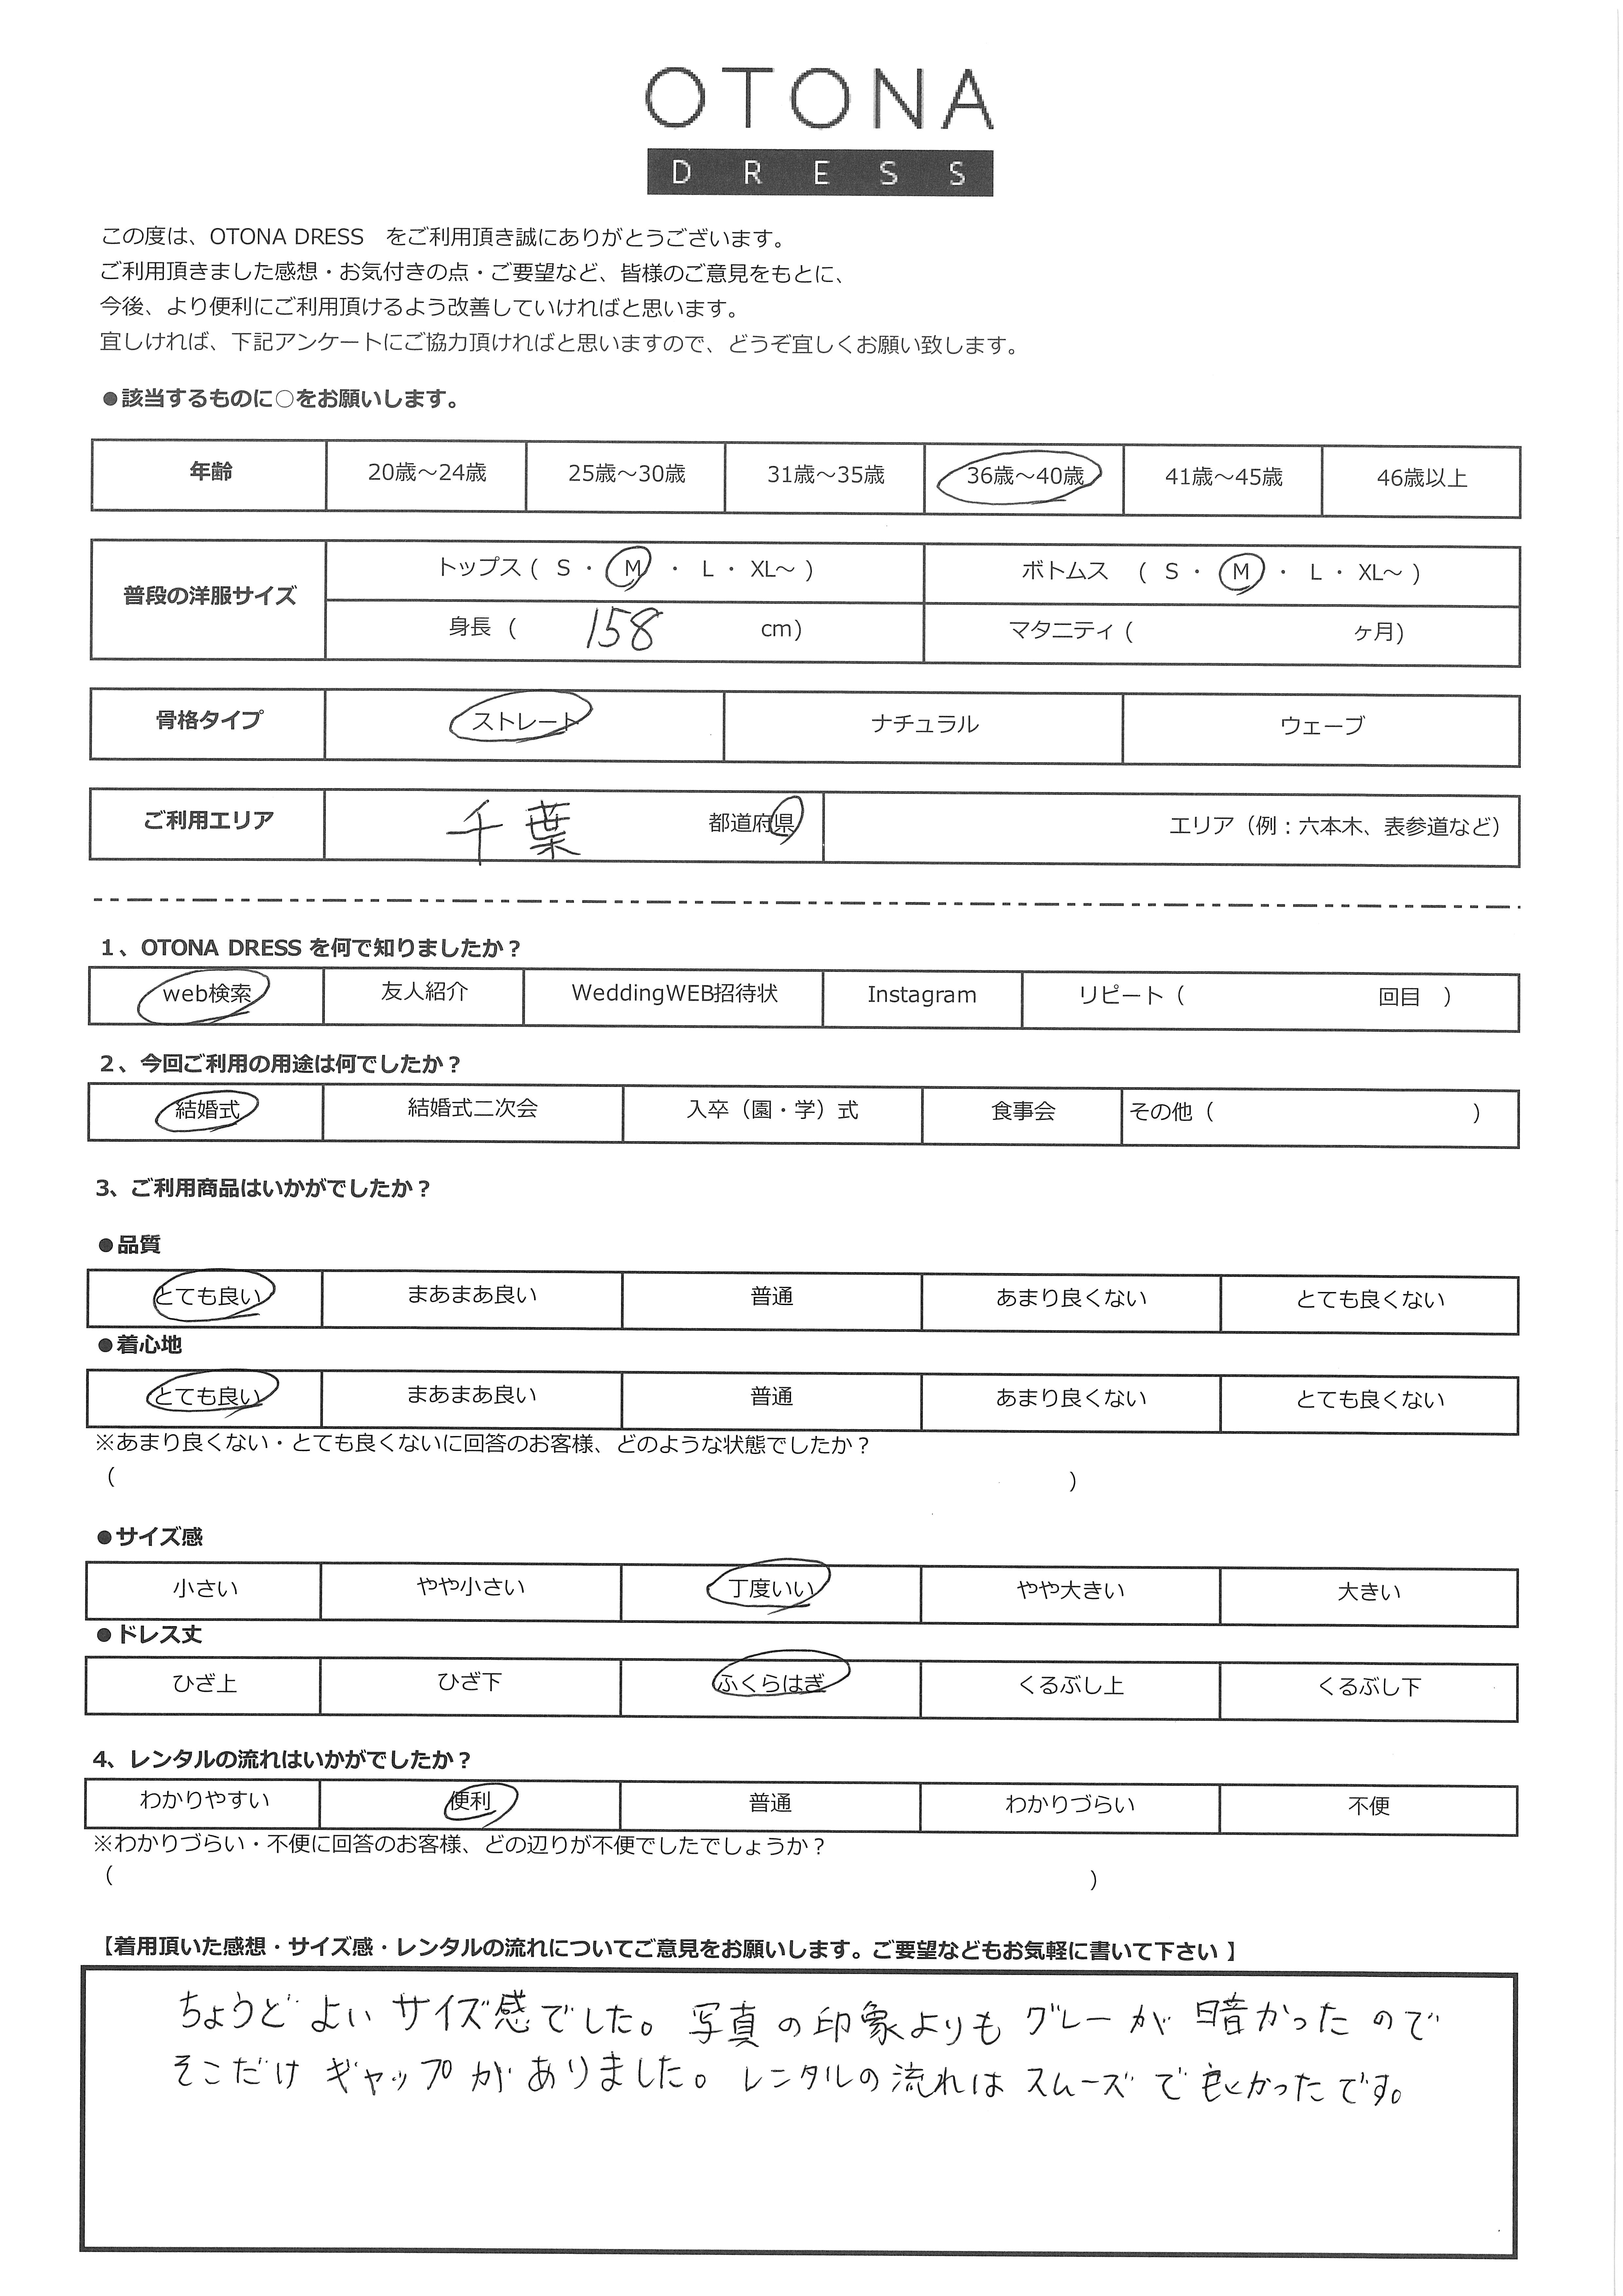 OTONA
DRESS
この度は、OTONA DRESS をご利用頂き誠にありがとうございます。
ご利用頂きました感想・お気付きの点・ご要望など、皆様のご意見をもとに、
今後、より便利にご利用頂けるよう改善していければと思います。
宜しければ、下記アンケートにご協力頂ければと思いますので、どうぞ宜しくお願い致します。
●該当するものに○をお願いします。
年齢 20歳～24歳 25歳～30歳 31歳～35歳 36歳～40歳 41歳～45歳 46歳以上
普段の洋服サイズ トップス ( S ・ M ・ L ・ XL～ ) ボトムス ( S ・ M ・ L ・ XL～ )
身長 ( 158 cm) マタニティ ( ヶ月)
骨格タイプ ストレート ナチュラル ウェーブ
ご利用エリア 千葉 都道府県 エリア（例：六本木、表参道など）
1、OTONA DRESS を何で知りましたか？
web検索 友人紹介 WeddingWEB招待状 Instagram リピート（ 回目 ）
2、今回ご利用の用途は何でしたか？
結婚式 結婚式二次会 入卒（園・学）式 食事会 その他（ ）
3、ご利用商品はいかがでしたか？
●品質
とても良い まあまあ良い 普通 あまり良くない とても良くない
●着心地
とても良い まあまあ良い 普通 あまり良くない とても良くない
※あまり良くない・とても良くないに回答のお客様、どのような状態でしたか？
（ ）
●サイズ感
小さい やや小さい 丁度いい やや大きい 大きい
●ドレス丈
ひざ上 ひざ下 ふくらはぎ くるぶし上 くるぶし下
4、レンタルの流れはいかがでしたか？
わかりやすい 便利 普通 わかりづらい 不便
※わかりづらい・不便に回答のお客様、どの辺りが不便でしたでしょうか？
（ ）
【着用頂いた感想・サイズ感・レンタルの流れについてご意見をお願いします。ご要望などもお気軽に書いて下さい 】
ちょうどよいサイズ感でした。写真の印象よりもグレーが暗かったので
そこだけギャップがありました。レンタルの流れはスムーズで良かったです。